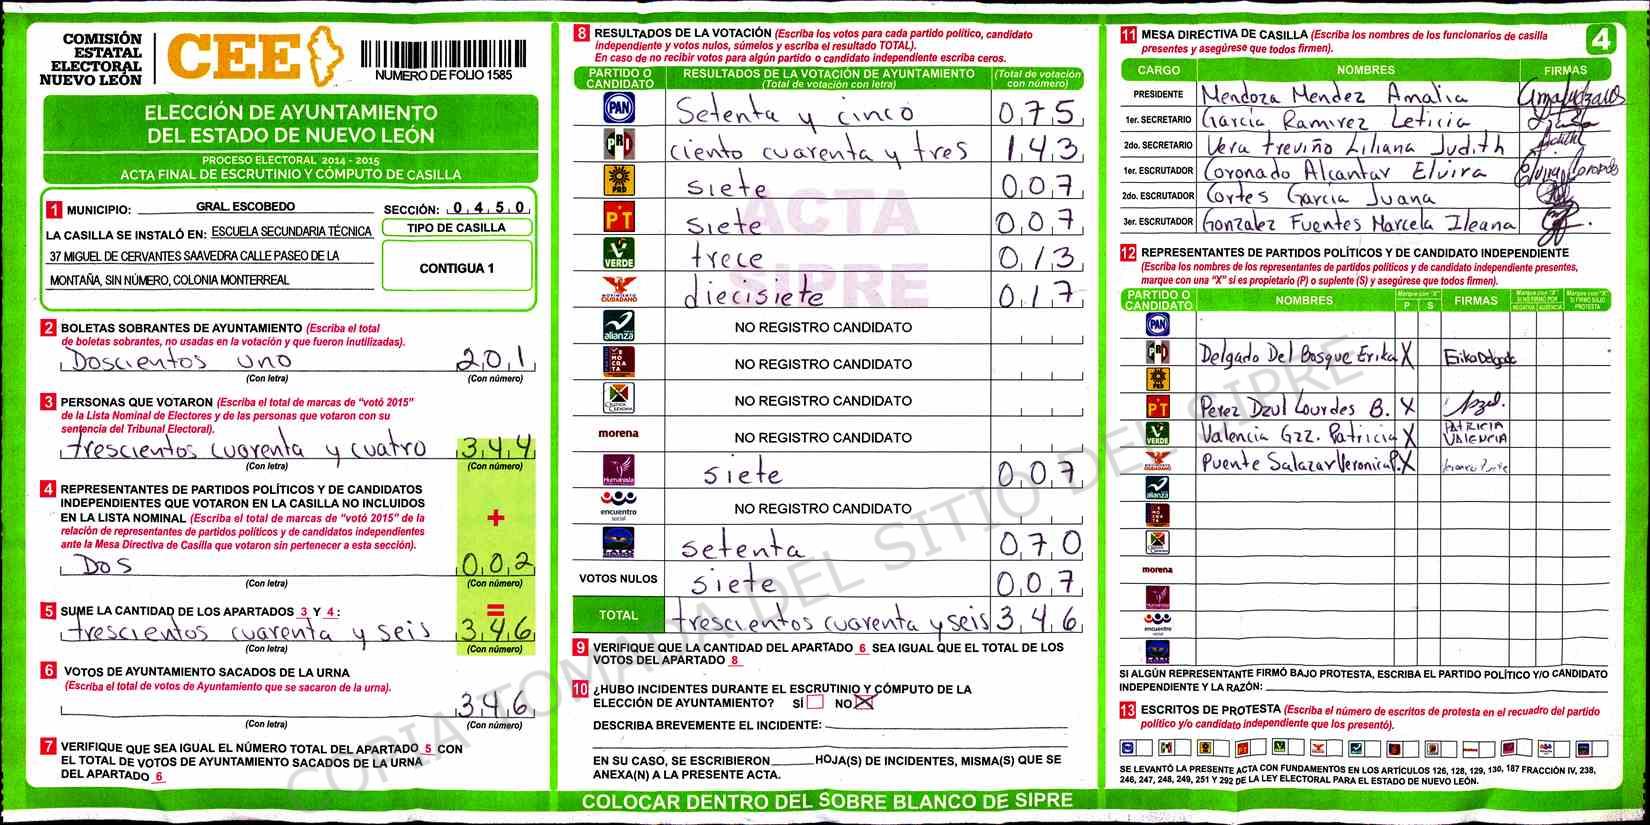 COMISIÓN
ESTATAL
ELECTORAL
NUEVO LEÓN
CEE
NUMERO DE FOLIO 1585
ELECCIÓN DE AYUNTAMIENTO
DEL ESTADO DE NUEVO LEÓN
PROCESO ELECTORAL 2014 - 2015
ACTA FINAL DE ESCRUTINIO Y CÓMPUTO DE CASILLA
1 MUNICIPIO: GRAL. ESCOBEDO SECCIÓN: 0 4 5 0
LA CASILLA SE INSTALÓ EN: ESCUELA SECUNDARIA TÉCNICA
37 MIGUEL DE CERVANTES SAAVEDRA CALLE PASEO DE LA
MONTAÑA, SIN NÚMERO, COLONIA MONTERREAL
TIPO DE CASILLA
CONTIGUA 1
2 BOLETAS SOBRANTES DE AYUNTAMIENTO (Escriba el total
de boletas sobrantes, no usadas en la votación y que fueron inutilizadas).
Doscientos uno 2 0 1
(Con letra) (Con número)
3 PERSONAS QUE VOTARON (Escriba el total de marcas de "votó 2015"
de la Lista Nominal de Electores y de las personas que votaron con su
sentencia del Tribunal Electoral).
trescientos cuarenta y cuatro 3 4 4
(Con letra) (Con número)
4 REPRESENTANTES DE PARTIDOS POLÍTICOS Y DE CANDIDATOS
INDEPENDIENTES QUE VOTARON EN LA CASILLA NO INCLUIDOS
EN LA LISTA NOMINAL (Escriba el total de marcas de "votó 2015" de la
relación de representantes de partidos políticos y de candidatos independientes
ante la Mesa Directiva de Casilla que votaron sin pertenecer a esta sección).
+
Dos 0 0 2
(Con letra) (Con número)
=
5 SUME LA CANTIDAD DE LOS APARTADOS 3 Y 4:
trescientos cuarenta y seis 3 4 6
(Con letra) (Con número)
6 VOTOS DE AYUNTAMIENTO SACADOS DE LA URNA
(Escriba el total de votos de Ayuntamiento que se sacaron de la urna).
3 4 6
(Con letra) (Con número)
7 VERIFIQUE QUE SEA IGUAL EL NÚMERO TOTAL DEL APARTADO 5 CON
EL TOTAL DE VOTOS DE AYUNTAMIENTO SACADOS DE LA URNA
DEL APARTADO 6
8 RESULTADOS DE LA VOTACIÓN (Escriba los votos para cada partido político, candidato
independiente y votos nulos, súmelos y escriba el resultado TOTAL).
En caso de no recibir votos para algún partido o candidato independiente escriba ceros.
PARTIDO O CANDIDATO RESULTADOS DE LA VOTACIÓN DE AYUNTAMIENTO (Total de votación con letra) (Total de votación con número)
PAN Setenta y cinco 0 7 5
PRI ciento cuarenta y tres 1 4 3
PRD siete 0 0 7
PT siete 0 0 7
VERDE trece 0 1 3
MOVIMIENTO CIUDADANO diecisiete 0 1 7
alianza NO REGISTRO CANDIDATO
DEMOCRATA NO REGISTRO CANDIDATO
NO REGISTRO CANDIDATO
morena NO REGISTRO CANDIDATO
Humanista siete 0 0 7
encuentro social NO REGISTRO CANDIDATO
setenta 0 7 0
VOTOS NULOS siete 0 0 7
TOTAL trescientos cuarenta y seis 3 4 6
ACTA
SIPRE
9 VERIFIQUE QUE LA CANTIDAD DEL APARTADO 6 SEA IGUAL QUE EL TOTAL DE LOS
VOTOS DEL APARTADO 8
10 ¿HUBO INCIDENTES DURANTE EL ESCRUTINIO Y CÓMPUTO DE LA
ELECCIÓN DE AYUNTAMIENTO? SÍ NO X
DESCRIBA BREVEMENTE EL INCIDENTE:
EN SU CASO, SE ESCRIBIERON HOJA(S) DE INCIDENTES, MISMA(S) QUE SE
ANEXA(N) A LA PRESENTE ACTA.
COLOCAR DENTRO DEL SOBRE BLANCO DE SIPRE
11 MESA DIRECTIVA DE CASILLA (Escriba los nombres de los funcionarios de casilla
presentes y asegúrese que todos firmen).
4
CARGO NOMBRES FIRMAS
PRESIDENTE Mendoza Mendez Amalia
1er. SECRETARIO Garcia Ramirez Leticia
2do. SECRETARIO Vera Treviño Liliana Judith
1er. ESCRUTADOR Coronado Alcantar Elvira
2do. ESCRUTADOR Cortes Garcia Juana
3er. ESCRUTADOR Gonzalez Fuentes Marcela Ileana
12 REPRESENTANTES DE PARTIDOS POLÍTICOS Y DE CANDIDATO INDEPENDIENTE
(Escriba los nombres de los representantes de partidos políticos y de candidato independiente presentes,
marque con una "X" si es propietario (P) o suplente (S) y asegúrese que todos firmen).
PARTIDO O CANDIDATO NOMBRES Marque con "X" P S FIRMAS Marque con "X" SI NO FIRMÓ POR NEGATIVA AUSENCIA Marque con "X" SI FIRMÓ BAJO PROTESTA
PAN
PRI Delgado Del Bosque Erika X Erika Delgado
PRD
PT Perez Dzul Lourdes B. X
VERDE Valencia Gzz. Patricia X PATRICIA VALENCIA
MOVIMIENTO CIUDADANO Puente Salazar Veronica P. X
alianza
DEMOCRATA
morena
Humanista
encuentro social
SI ALGÚN REPRESENTANTE FIRMÓ BAJO PROTESTA, ESCRIBA EL PARTIDO POLÍTICO Y/O CANDIDATO
INDEPENDIENTE Y LA RAZÓN:
13 ESCRITOS DE PROTESTA (Escriba el número de escritos de protesta en el recuadro del partido
político y/o candidato independiente que los presentó).
SE LEVANTÓ LA PRESENTE ACTA CON FUNDAMENTOS EN LOS ARTÍCULOS 126, 128, 129, 130, 187 FRACCIÓN IV, 238,
246, 247, 248, 249, 251 Y 292 DE LA LEY ELECTORAL PARA EL ESTADO DE NUEVO LEÓN.
COPIA TOMADA DEL SITIO DEL SIPRE